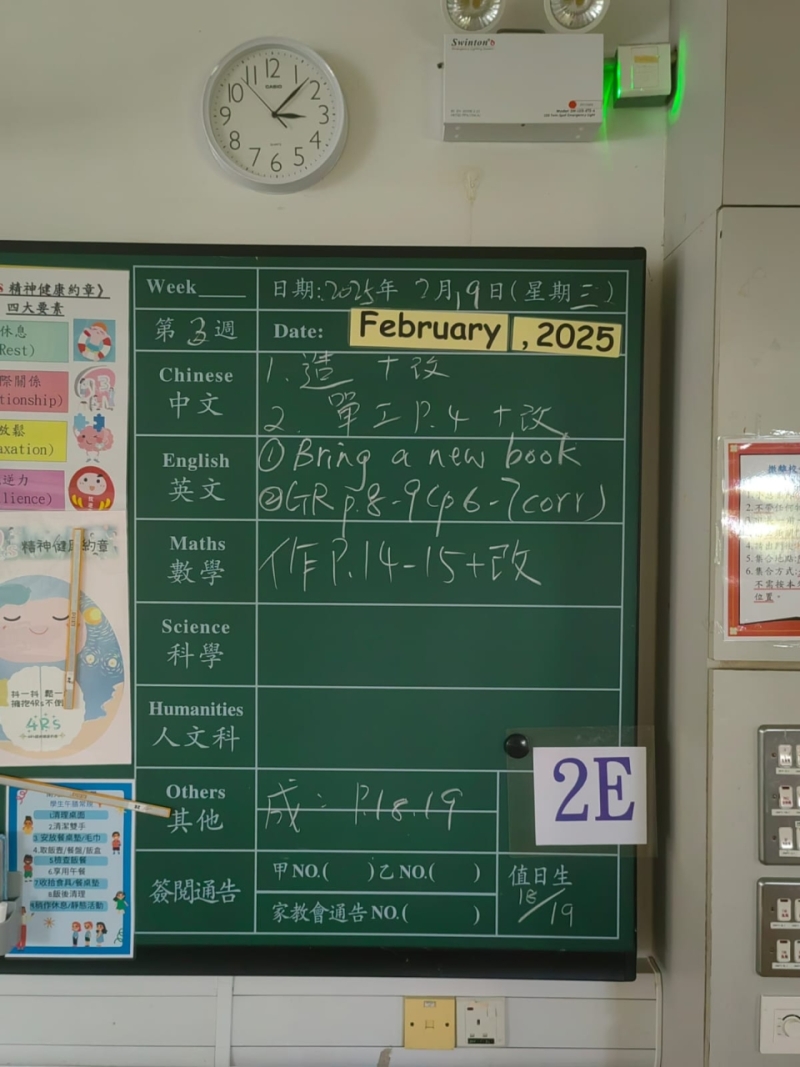 11 12 1 2 3 4 5 6 7 8 9 10
CASIO
Swinton's
精神健康約章》
四大要素
休息
Rest)
際關係
tionship)
放鬆
axation)
逆力
lience)
精神健康約章
抖一抖 鬆一
擁抱4Rs不倒
4Rs
學生午膳常規
1清理桌面
2清潔雙手
3.安放餐桌墊/毛巾
4.取飯壺/餐盤/飯盒
5檢查飯餐
6.享用午餐
7收拾食具/餐桌墊
8.飯後清理
9稍作休息/靜態活動
Week____ 日期:2025年 2月19日(星期三)
第3週 Date: February , 2025
Chinese
中文
1. 造 +改
2. 單工P.4 +改
English
英文
①Bring a new book
②GR p.8-9(p6-7corr)
Maths
數學
作P.14-15+改
Science
科學
Humanities
人文科
2E
Others
其他
成: P.18.19
簽閱通告
甲NO.( )乙NO.( )
家教會通告NO.( )
值日生
18/19
5.集合地點
6.集合方式:
不需按本
位置。